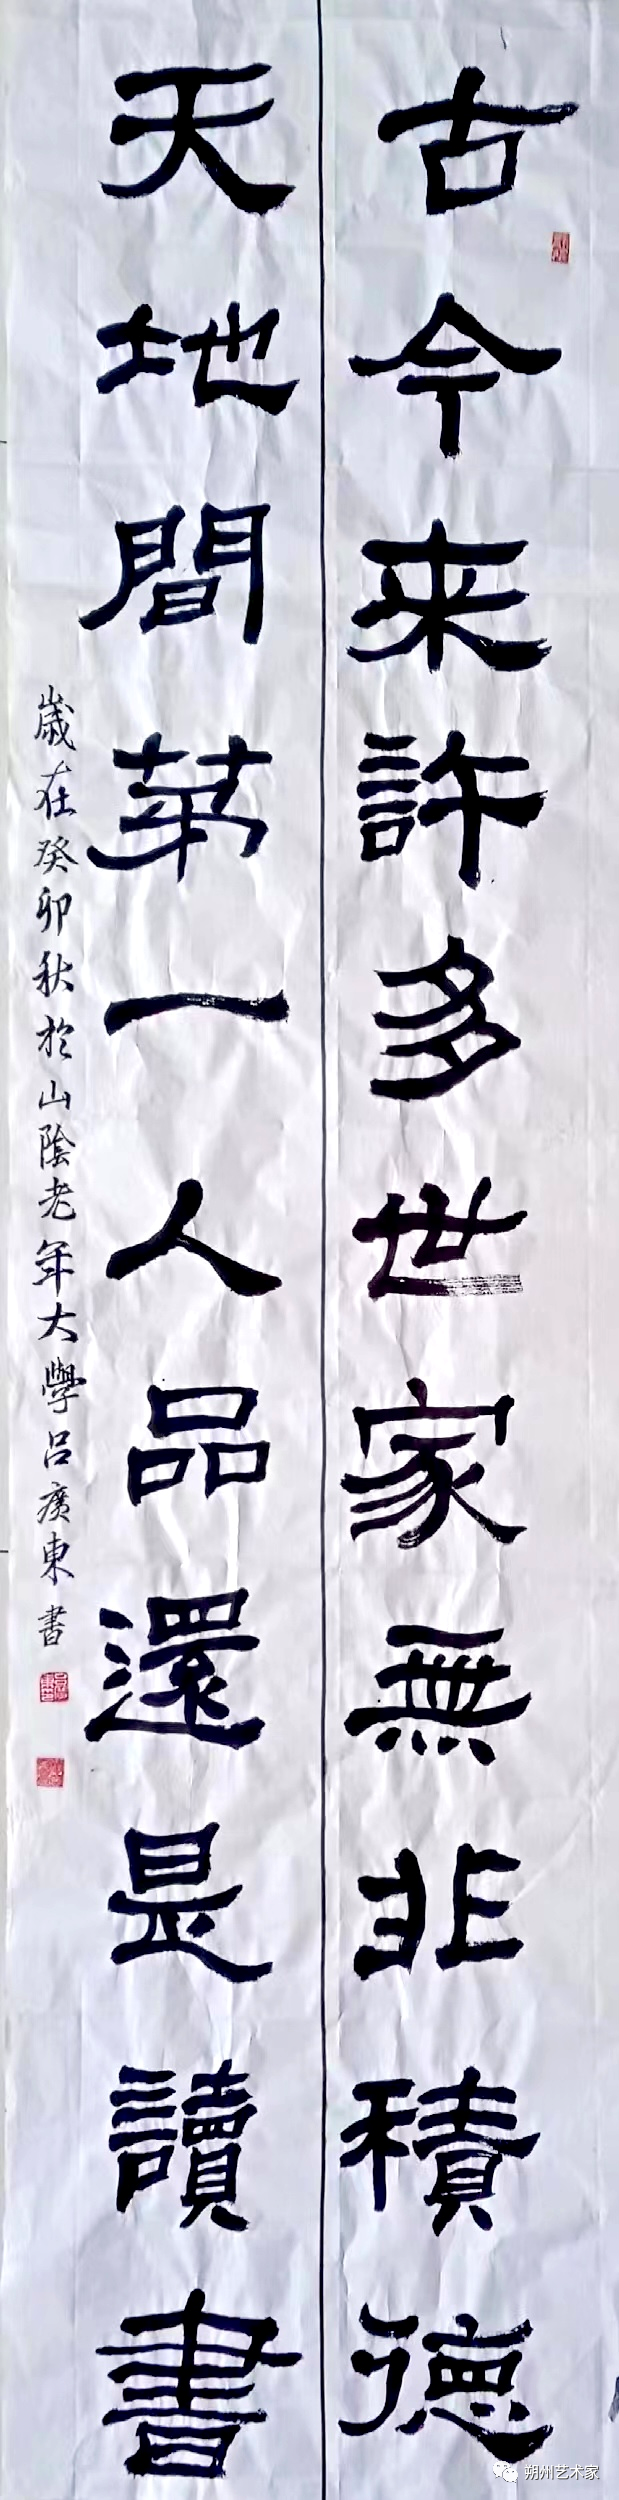 古今来許多世家無非積德
天地間第一人品還是讀書
歲在癸卯秋於山陰老年大學吕廣東書
朔州艺术家